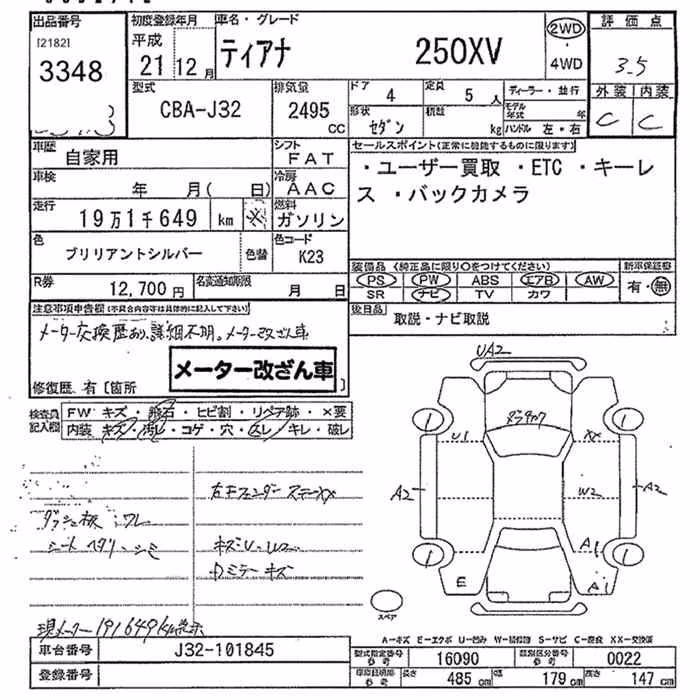 出品番号
[2182]
3348
初度登録年月
平成
21 12 月
車名・グレード
ティアナ 250XV
2WD
・
4WD
評価点
3.5
外装 内装
C C
型式
CBA-J32
排気量
2495
CC
ドア 4
定員 5 人
形状 セダン
積載 kg
ディーラー・並行
モデル年式 年
ハンドル 左・右
車歴 自家用
シフト
FAT
車検 年 月( 日)
冷房
AAC
走行 19万1千649 km
燃料
ガソリン
色 ブリリアントシルバー
色替
色コード
K23
R券 12,700 円
名変通知期限 月 日
セールスポイント(正常に機能するものに限ります)
・ユーザー買取 ・ETC ・キーレ
ス ・バックカメラ
装備品 (純正品に限り○をつけてください)
PS PW ABS エアB AW
SR ナビ TV カワ
新車保証書
有・無
後日品 取説・ナビ取説
注意事項申告欄(不具合内容等は具体的に記入して下さい)
メーター交換歴あり、詳細不明。メーター改ざん車
メーター改ざん車
修復歴 有〔箇所
検査員
記入欄
FW キズ・飛石・ヒビ割・リペア跡・×要
内装 キズ・汚レ・コゲ・穴・スレ・キレ・破レ
ダッシュ板・ワレ
シート ヘタリ・シミ
キズU・W2
現メーター191649km表示
UA2
U1
XX
A2
W2
A2
A1
E
A1
スペア
A-キズ E-エクボ U-凹み W-補修跡 S-サビ C-腐食 XX-交換済
車台番号 J32-101845
登録番号
型式指定番号 参考 16090
類別区分番号 参考 0022
車検証記載 参考
長さ 485 cm
幅 179 cm
高さ 147 cm